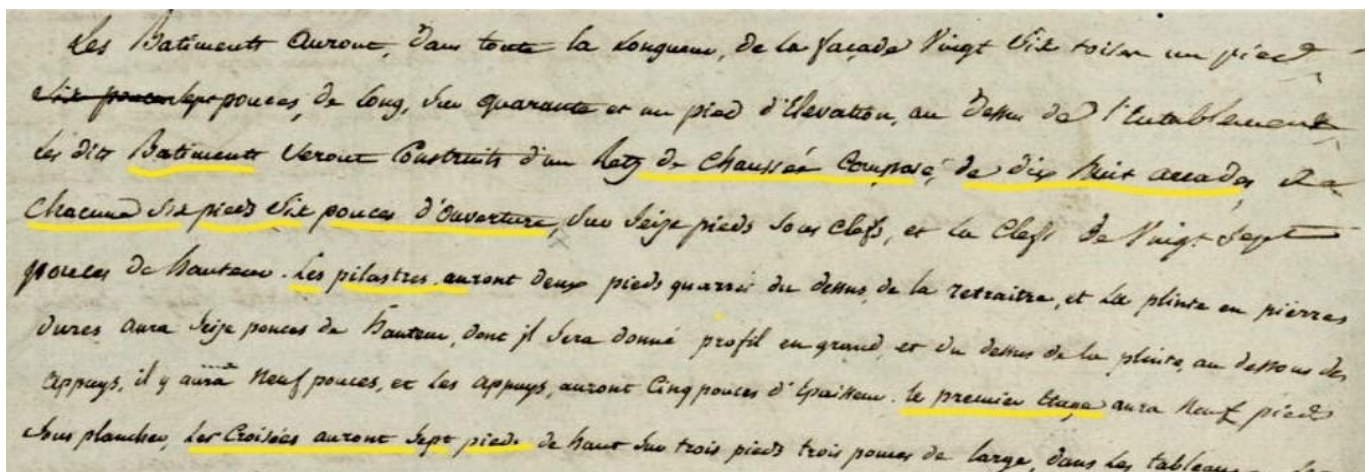 Les Batiments auront, dans toute la Longueur, de la façade Vingt Six toises un pied
six pouces sept pouces, de long, sur quarante et un pied d'Elevation, au dessus de l'Entablement
Les dits Batiments Seront Construits d'un Retz de chaussée Composé, de dix huit arcades,
chacune Six pieds Six pouces d'Ouverture, sur Seize pieds sous Clefs, et la Clefs de Vingt Sept
pouces de hauteur. Les pilastres, auront deux pieds quarrés du dessus, de la retraitre, et La plinte en pierres
dures aura Seize pouces de hauteur, dont jl sera donné profil en grand, et du dessus de la plinte, au dessous des
appuys, il y aura neuf pouces, et Les appuys, auront Cinq pouces d'Epaisseur. le premier Etage aura neuf pieds
sous plancher, Les Croisées auront Sept pieds de haut sur trois pieds trois pouces de large, dans Les tableaux